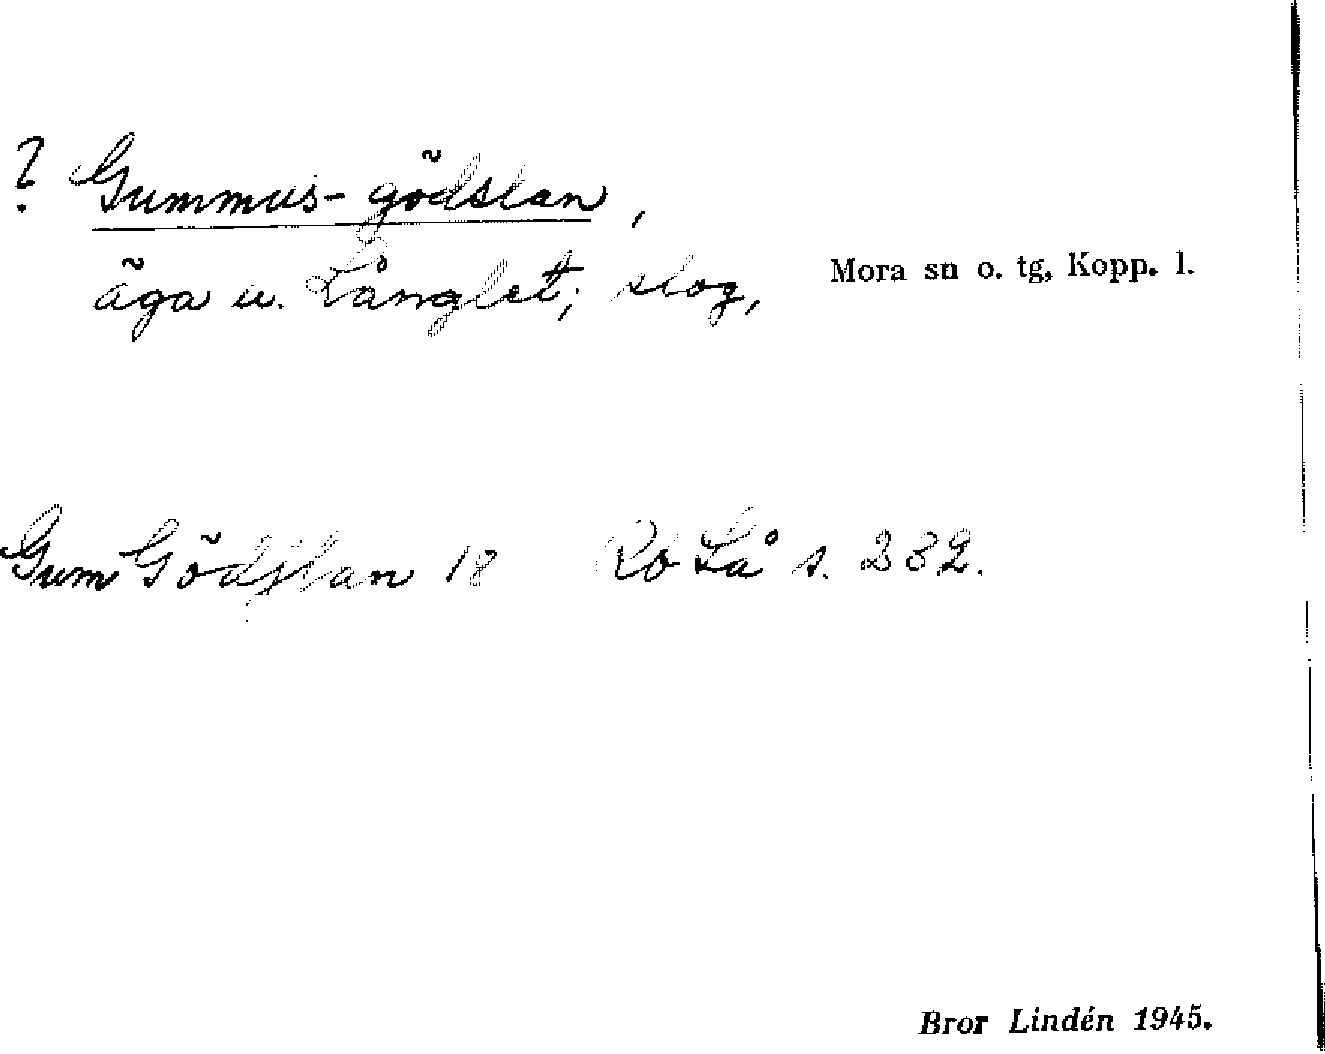 ? Gummus-gödslan,
äga u. Långlet; slog,
Mora sn o. tg, Kopp. l.
Gum Gödslan 18 Rö Lå s. 232.
Bror Lindén 1945.